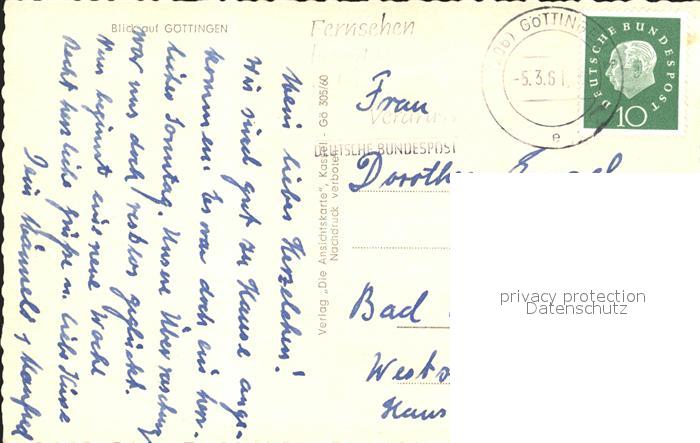 Blick auf GÖTTINGEN
Mein liebes Herzelchen!
Wir sind gut zu Hause ange-
kommen. Es war doch ein herr-
licher Sonntag. Unsere Überraschung
war uns doch restlos geglückt.
Nun beginnt eine neue Woche
Recht herzliche Grüße u. liebe Küsse
Dein
Manfred
Verlag „Die Ansichtskarte“, Kassel - Gö 305/60
Nachdruck verboten
Fernsehen
DEUTSCHE BUNDESPOST
GÖTTINGEN
-5.3.61
e
DEUTSCHE BUNDESPOST
10
Frau
Doroth
Bad
Wests
Haus
privacy protection
Datenschutz